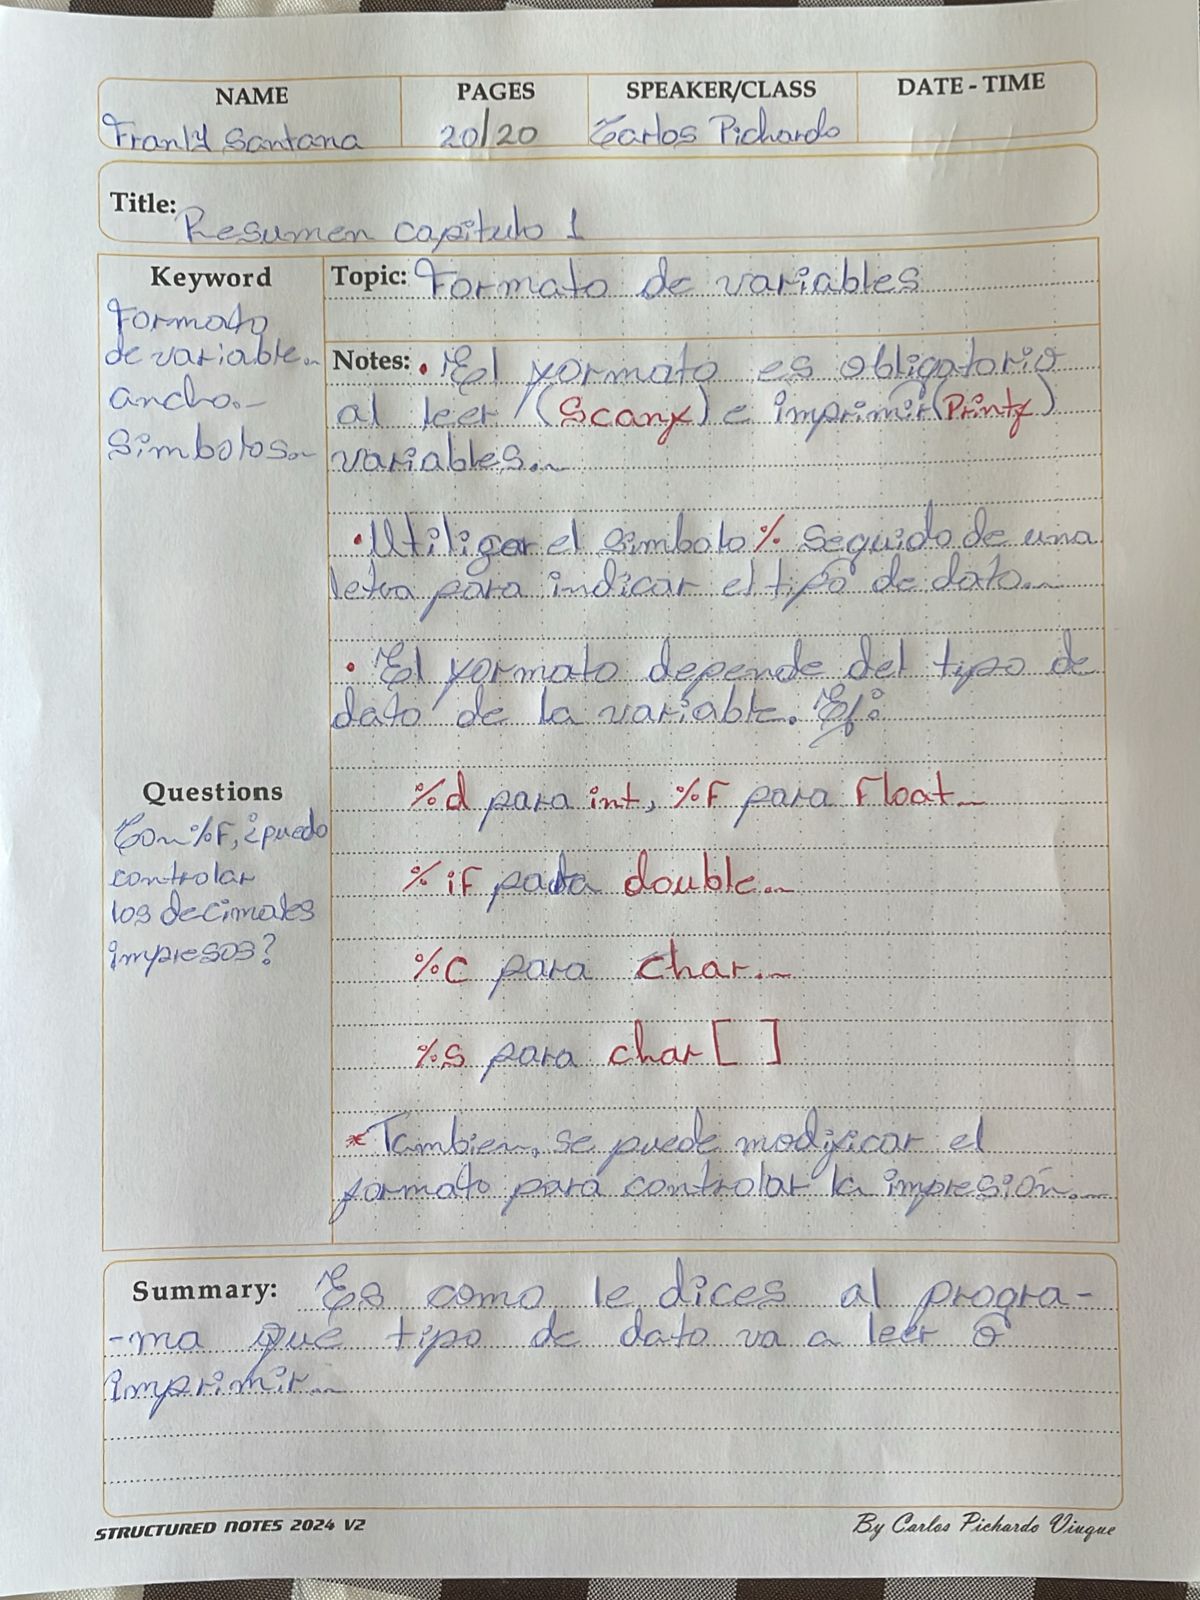 NAME PAGES SPEAKER/CLASS DATE - TIME
Franly Santana 20/20 Carlos Pichardo
Title: Resumen capitulo 1
Keyword
Formato
de variable.
ancho.
Simbolos.
Topic: Formato de variables
Notes: • El formato es obligatorio
al leer (Scanf) e imprimir (Printf)
variables.
• Utilizar el simbolo % seguido de una
letra para indicar el tipo de dato.
• El formato depende del tipo de
dato de la variable. Ej:
%d para int, %F para Float.
%iF para double.
%C para char.
%s para char [ ]
* Tambien, se puede modificar el
formato para controlar la impresión.
Questions
Con %F, ¿puedo
controlar
los decimales
impresos?
Summary: Es como le dices al progra-
-ma que tipo de dato va a leer o
imprimir.
STRUCTURED NOTES 2024 V2
By Carlos Pichardo Viuque